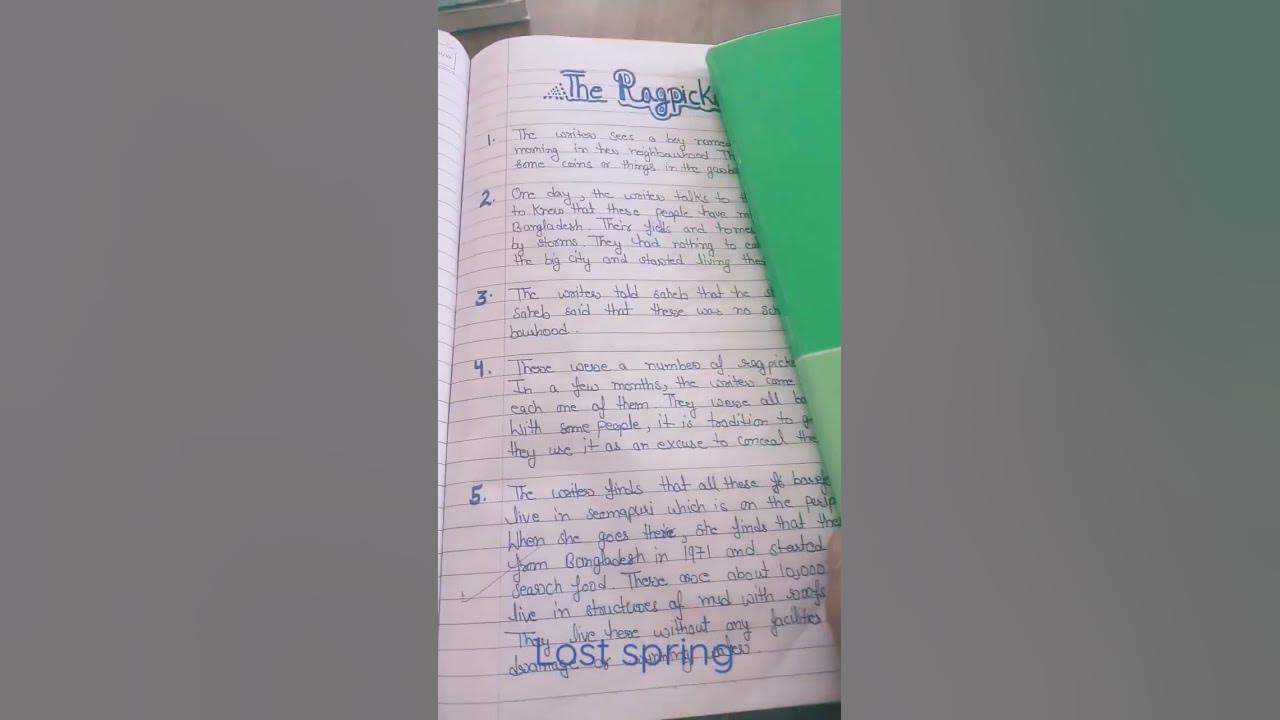 The Ragpick
1. The writer sees a boy named
morning in her neighbourhood. Th
some coins or things in the garba
2. One day, the writer talks to t
to know that these people have m
Bangladesh. Their fields and homes
by storms. They had nothing to ea
the big city and started living the
3. The writer told saheb that he s
saheb said that there was no sch
bourhood.
4. There were a number of ragpicke
In a few months, the writer came
each one of them. They were all ba
With some people, it is tradition to g
they use it as an excuse to conceal the
5. The writer finds that all these baref
live in seemapuri which is on the perip
When she goes there, she finds that the
from Bangladesh in 1971 and started
search food. There are about 10,000
live in structures of mud with roofs
They live here without any facilities
drainage or running water.
Lost spring